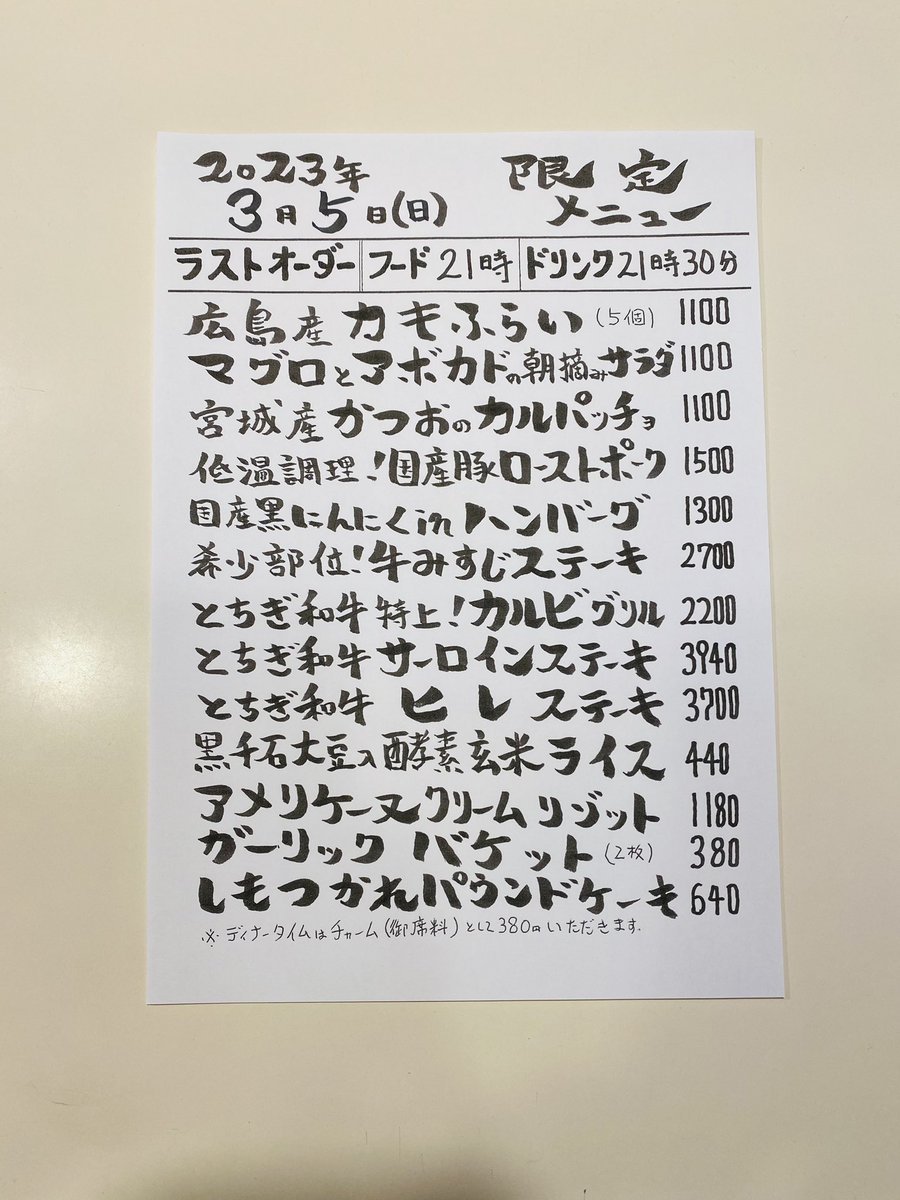 2023年 限定
3月5日(日) メニュー
ラストオーダー フード21時 ドリンク21時30分
広島産カキふらい(5個) 1100
マグロとアボカドの朝摘みサラダ 1100
宮城産かつおのカルパッチョ 1100
低温調理!国産豚ローストポーク 1500
国産黒にんにくinハンバーグ 1300
希少部位!牛みすじステーキ 2700
とちぎ和牛特上!カルビグリル 2200
とちぎ和牛サーロインステーキ 3940
とちぎ和牛ヒレステーキ 3700
黒千石大豆入酵素玄米ライス 440
アメリケーヌクリームリゾット 1180
ガーリックバケット(2枚) 380
しもつかれパウンドケーキ 640
※ディナータイムはチャーム(御席料)として380円いただきます。